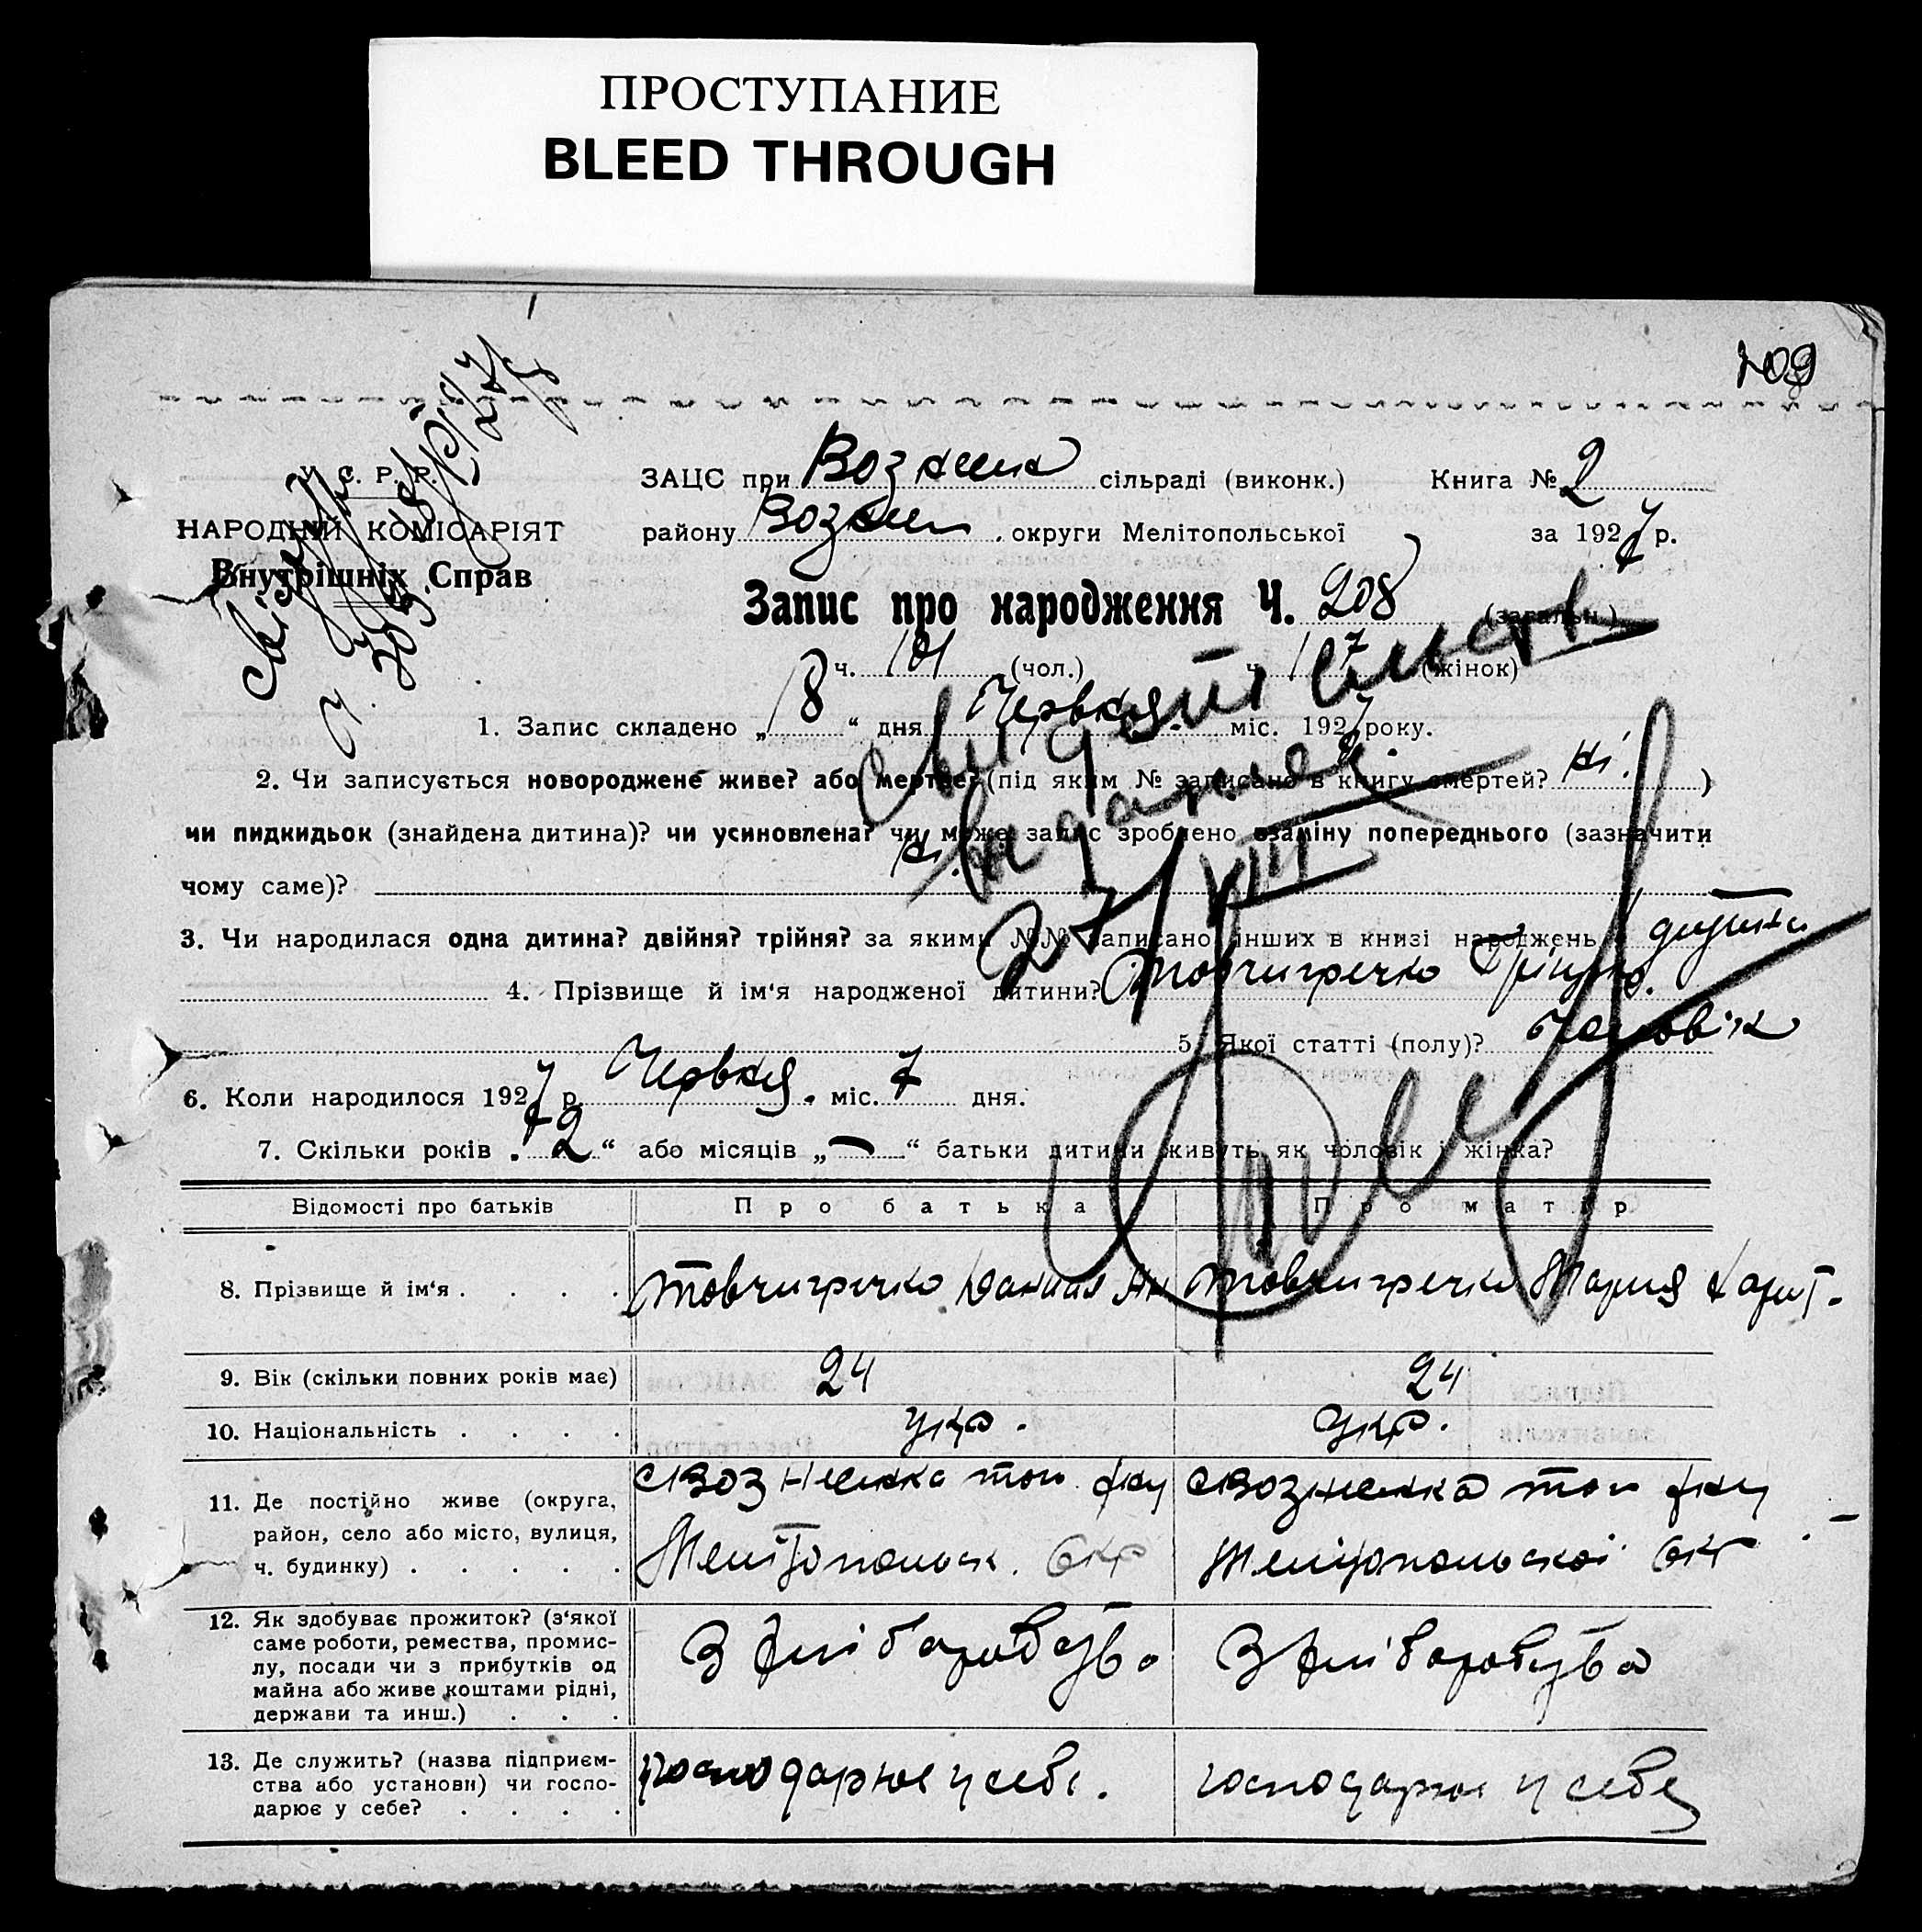 ПРОСТУПАНИЕ
BLEED THROUGH
109
У. С. Р. Р.
НАРОДНИЙ КОМІСАРІЯТ
Внутрішніх Справ
ЗАЦС при Вознен сільраді (виконк.) Книга № 2
району Вознен. округи Мелітопольської за 1927 р.
Запис про народження Ч. 208 (загальн.)
ч. 101 (чол.) ч. 107 (жінок)
1. Запис складено „8“ дня Червня міс. 1927 року.
2. Чи записується новороджене живе? або мертве? (під яким № записано в книгу смертей? Ні.)
чи пидкидьок (знайдена дитина)? чи усиновлена? чи може запис зроблено взаміну попереднього (зазначити
чому саме)? Ні.
3. Чи народилася одна дитина? двійня? трійня? за якими №№ записано інших в книзі народжень 1 дитина
4. Прізвище й ім‘я народженої дитини? Товчигречко
5. Якої статті (полу)? Чоловік
6. Коли народилося 1927 р. Червня міс. 7 дня.
7. Скільки років „2“ або місяців „—“ батьки дитини живуть як чоловік і жінка?
Відомості про батьків Про батька Про матір
8. Прізвище й ім‘я . . . . Товчигречко Даниил Ян Товчигречко Мария Харит.
9. Вік (скільки повних років має) 24 24
10. Національність . . . . укр. укр.
11. Де постійно живе (округа, район, село або місто, вулиця, ч. будинку) . . . . . с Вознесенка того ж Мелітопольск. окр с Вознесенка того ж Мелітопольскоі окр
12. Як здобуває прожиток? (з‘якої саме роботи, ремества, промислу, посади чи з прибутків од майна або живе коштами рідні, держави та инш.) . . . З хліборобства З хліборобства
13. Де служить? (назва підприємства або установи) чи господарює у себе? . . . . господарює у себе. господарює у себе
Свидоцтво
видано
27/VIII